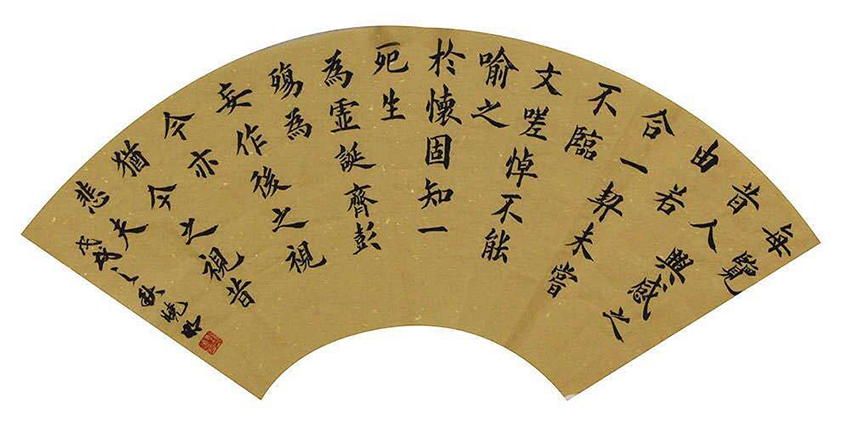 每覽
昔人興感之
由若
合一契未嘗
不臨
文嗟悼不能
喻之
於懷固知一
死生
為虛誕齊彭
殤為
妄作後之視
今亦
猶今之視昔
悲夫
戊戌之秋曉